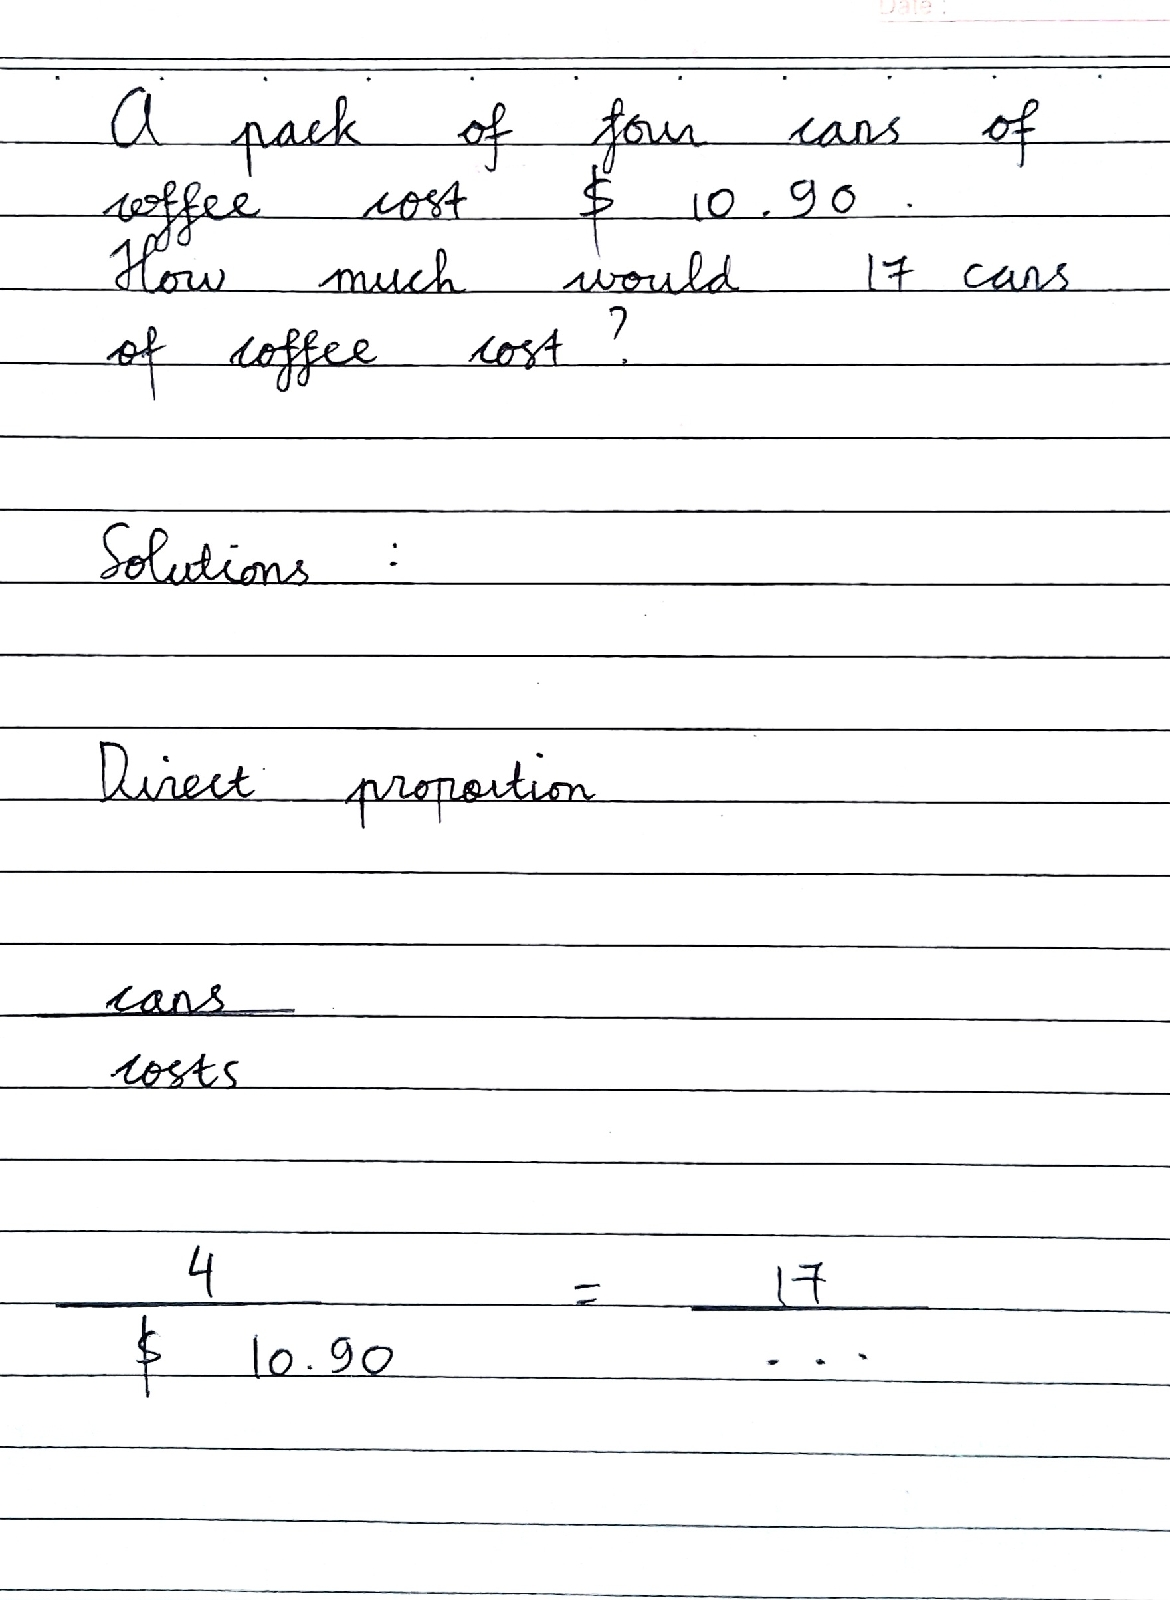 Date :
A pack of four cans of
coffee cost $ 10.90.
How much would 17 cans
of coffee cost?
Solutions :
Direct proportion
cans
costs
4 = 17
$ 10.90 ...